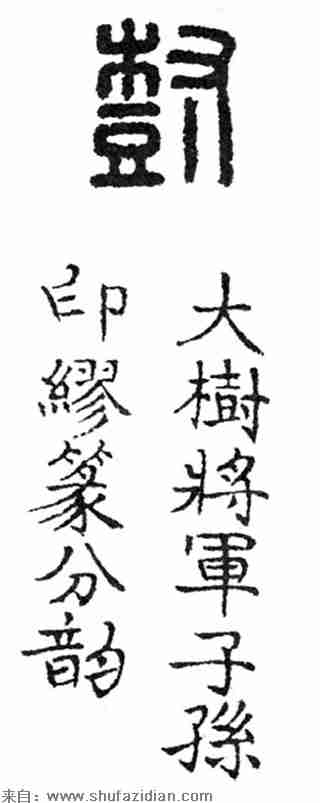 樹
大樹將軍子孫
印繆篆分韵
来自：www.shufazidian.com